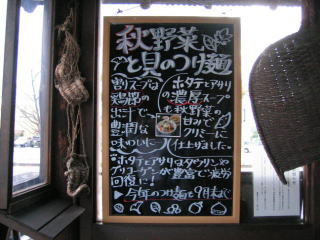 秋野菜
と貝のつけ麺
割りスープは
鶏膠の
出汁で
豊潤な
味わいに
ホタテとアサリ
の濃厚スープ
を秋野菜の
甘みで
クリーミーに
仕上ました。
ホタテとアサリはタウリンや
グリコーゲンが豊富で疲労
回復に!
今年のつけ麺も9月末まで